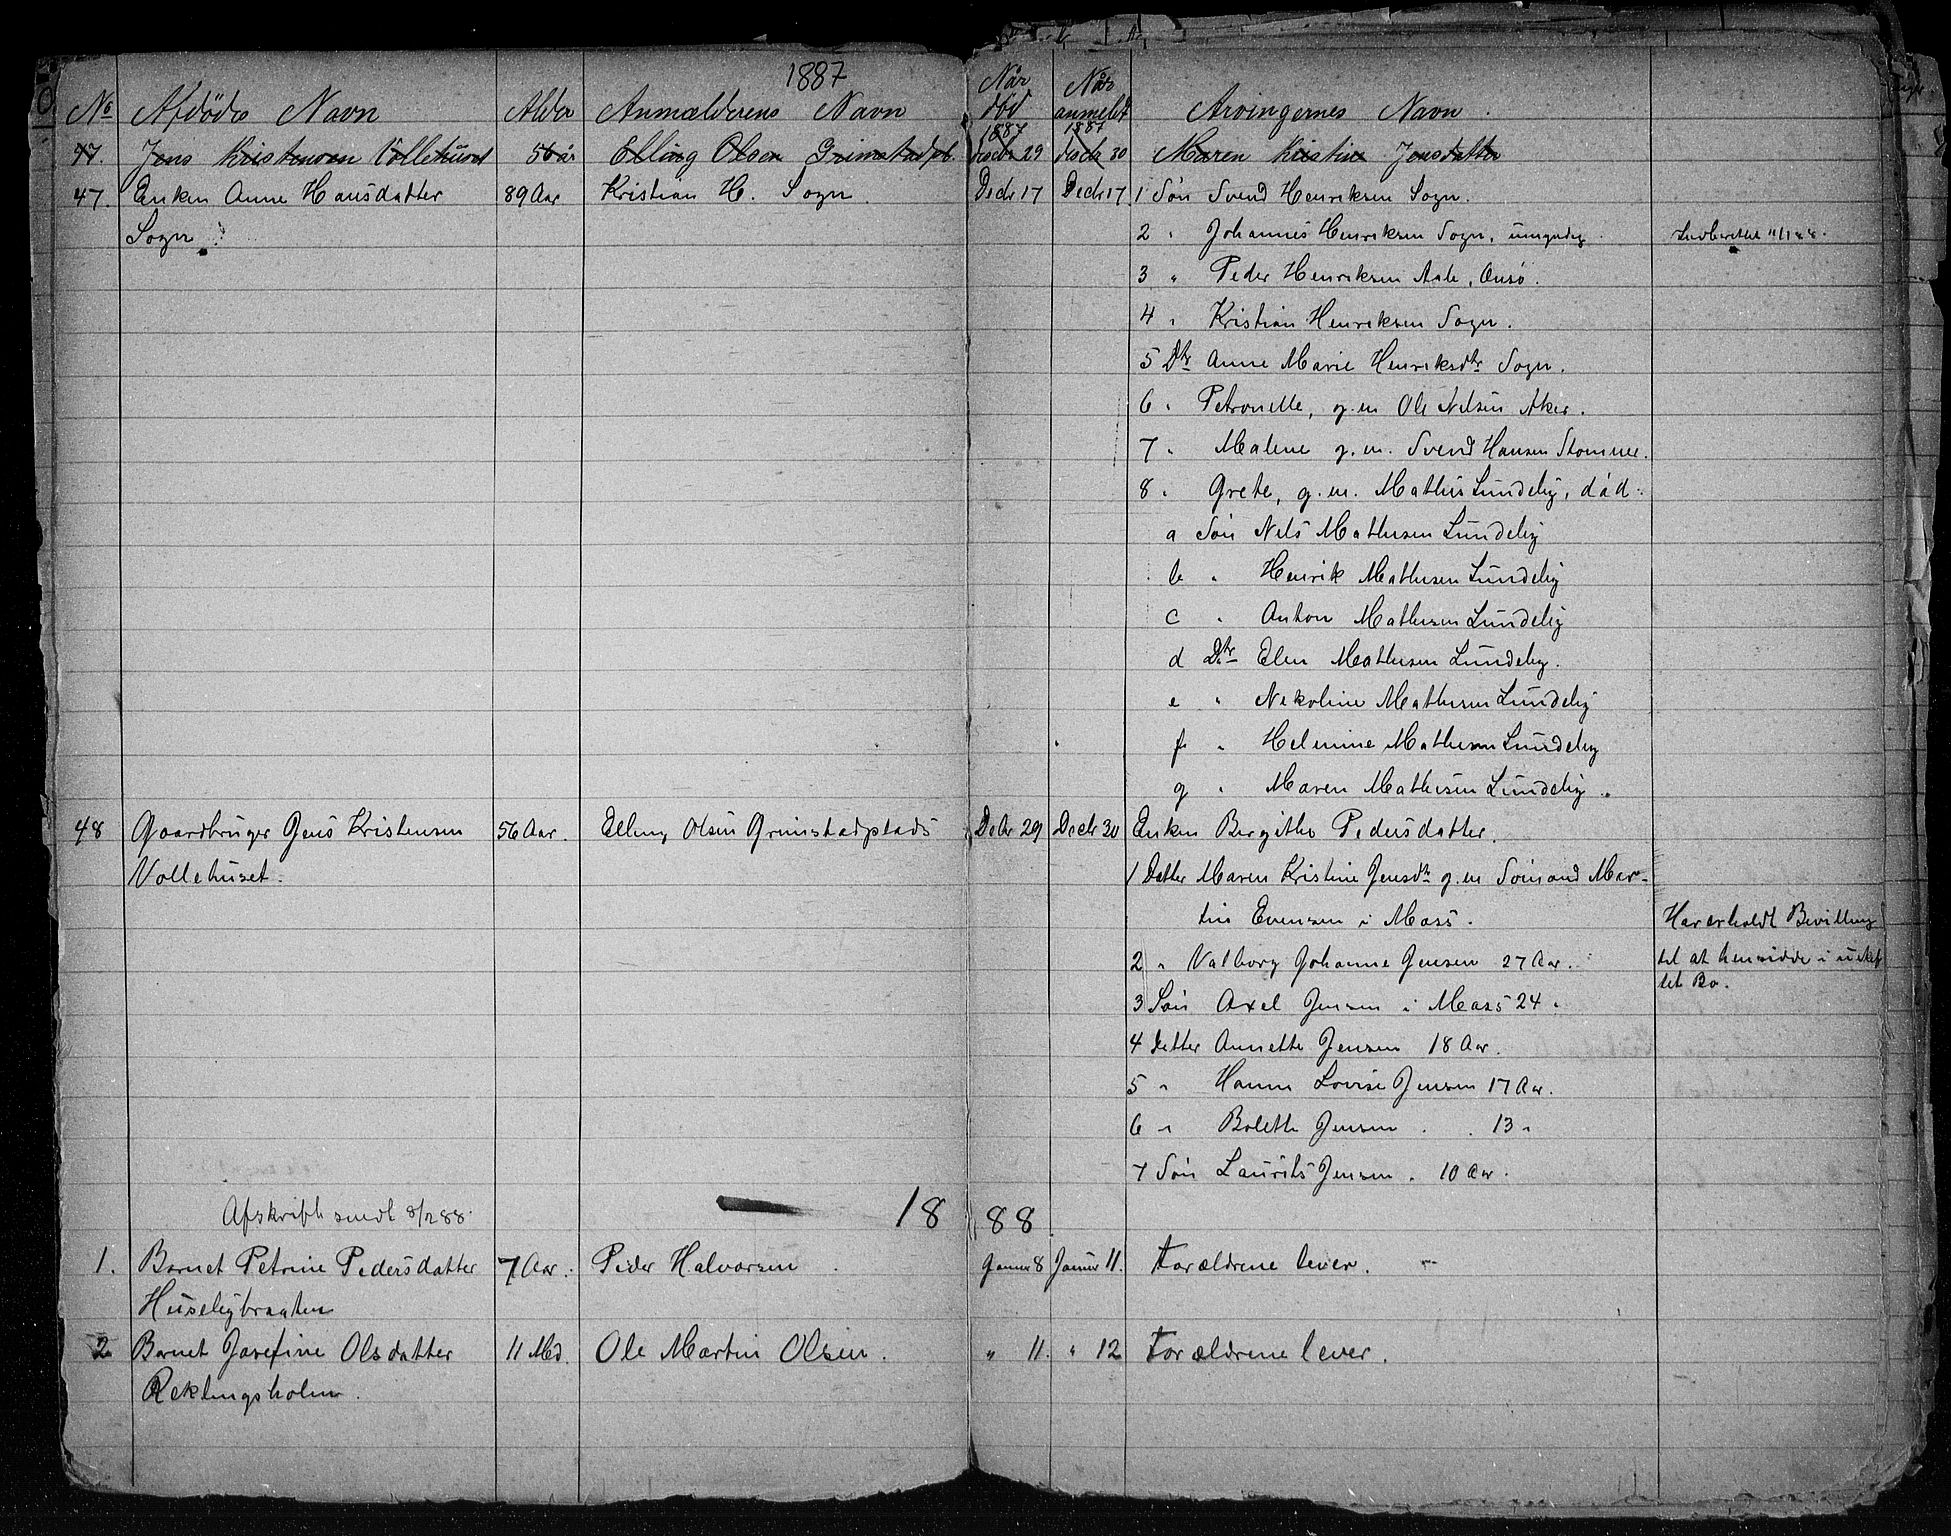 1887
No Afdødes Navn Alder Anmælderens Navn Når død Når anmeldt Arvingernes Navn
1887 1887
47. Jens Kristensen Vollehuset 56 år Elling Olsen Grimstadpl. decbr 29 decbr 30 Maren Kristine Jensdatter
47. Enken Anne Hansdatter 89 Aar Kristian H. Sogn Decbr 17 Decbr 17 1 Søn Svend Henriksen Sogn.
Sogn 2 " Johannes Henriksen Sogn, umyndig.
3 " Peder Henriksen Aale, Onsø.
4 " Kristian Henriksen Sogn.
5 Dtr Anne Marie Henriksdtr Sogn.
6 " Petronelle, g. m Ole Nilsen Aker.
7 " Malene g. m. Svend Hansen Stomner.
8 " Grete, g. m. Mathis Lundeby, død:
a Søn Nels Mathisen Lundeby
b " Henrik Mathisen Lundeby
c " Anton Mathisen Lundeby
d Dtr Elen Mathisen Lundeby.
e " Nekoline Mathisen Lundeby
f " Helmine Mathisen Lundeby
g " Maren Mathisen Lundeby.
48 Gaardbruger Jens Kristensen 56 Aar. Elling Olsen Grimstadplads Decbr 29 Decbr 30 Enken Birgithe Pedersdatter.
Vollehuset. 1 Datter Maren Kristine Jensdtr g. m Sømand Mar-
tin Evensen i Moss. Har erholdt Bevilling
2 " Valborg Johanne Jensen 27 Aar. til at hensidde i uskif
3 Søn Axel Jensen i Moss 24 " tet Bo.
4 Datter Annette Jensen 18 Aar.
5 " Hanna Lovise Jensen 17 Aar.
6 " Bolette Jensen 13 "
7 Søn Laurits Jensen. 10 Aar.
Afskrift sendt 8/2 88. 1888
1. Barnet Petrine Pedersdatter 7 Aar. Peder Halvorsen Januar 8 Januar 11. Forældrene lever.
Husebybraaten
2 Barnet Josefine Olsdatter 11 Md. Ole Martin Olsen. " 11. " 12 Forældrene lever.
Reklingsholm.